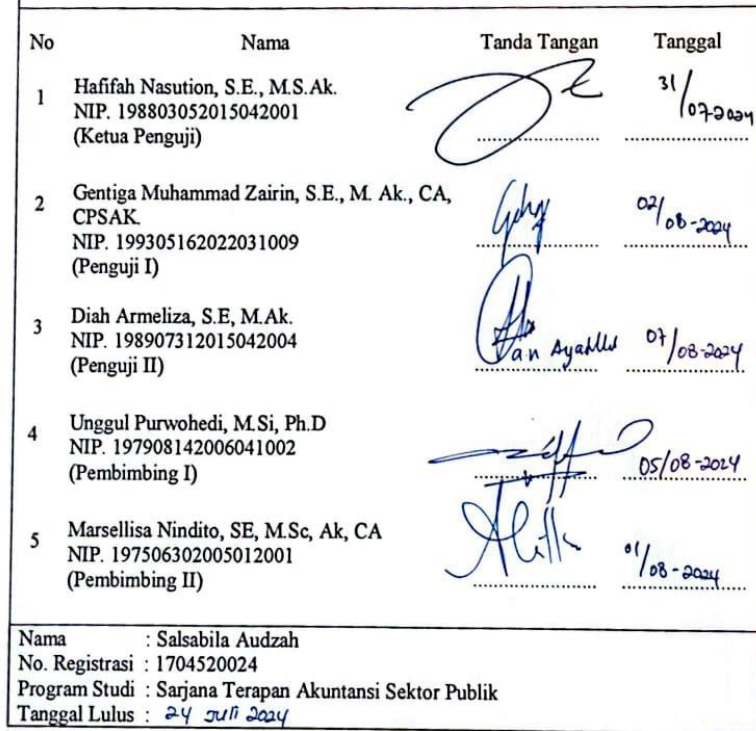 No Nama Tanda Tangan Tanggal
1 Hafifah Nasution, S.E., M.S.Ak.
NIP. 198803052015042001
(Ketua Penguji)
31/07-2024
2 Gentiga Muhammad Zairin, S.E., M. Ak., CA,
CPSAK.
NIP. 199305162022031009
(Penguji I)
02/08-2024
3 Diah Armeliza, S.E, M.Ak.
NIP. 198907312015042004
(Penguji II)
an 07/08-2024
4 Unggul Purwohedi, M.Si, Ph.D
NIP. 197908142006041002
(Pembimbing I)
05/08-2024
5 Marsellisa Nindito, SE, M.Sc, Ak, CA
NIP. 197506302005012001
(Pembimbing II)
01/08-2024
Nama : Salsabila Audzah
No. Registrasi : 1704520024
Program Studi : Sarjana Terapan Akuntansi Sektor Publik
Tanggal Lulus : 24 Juli 2024